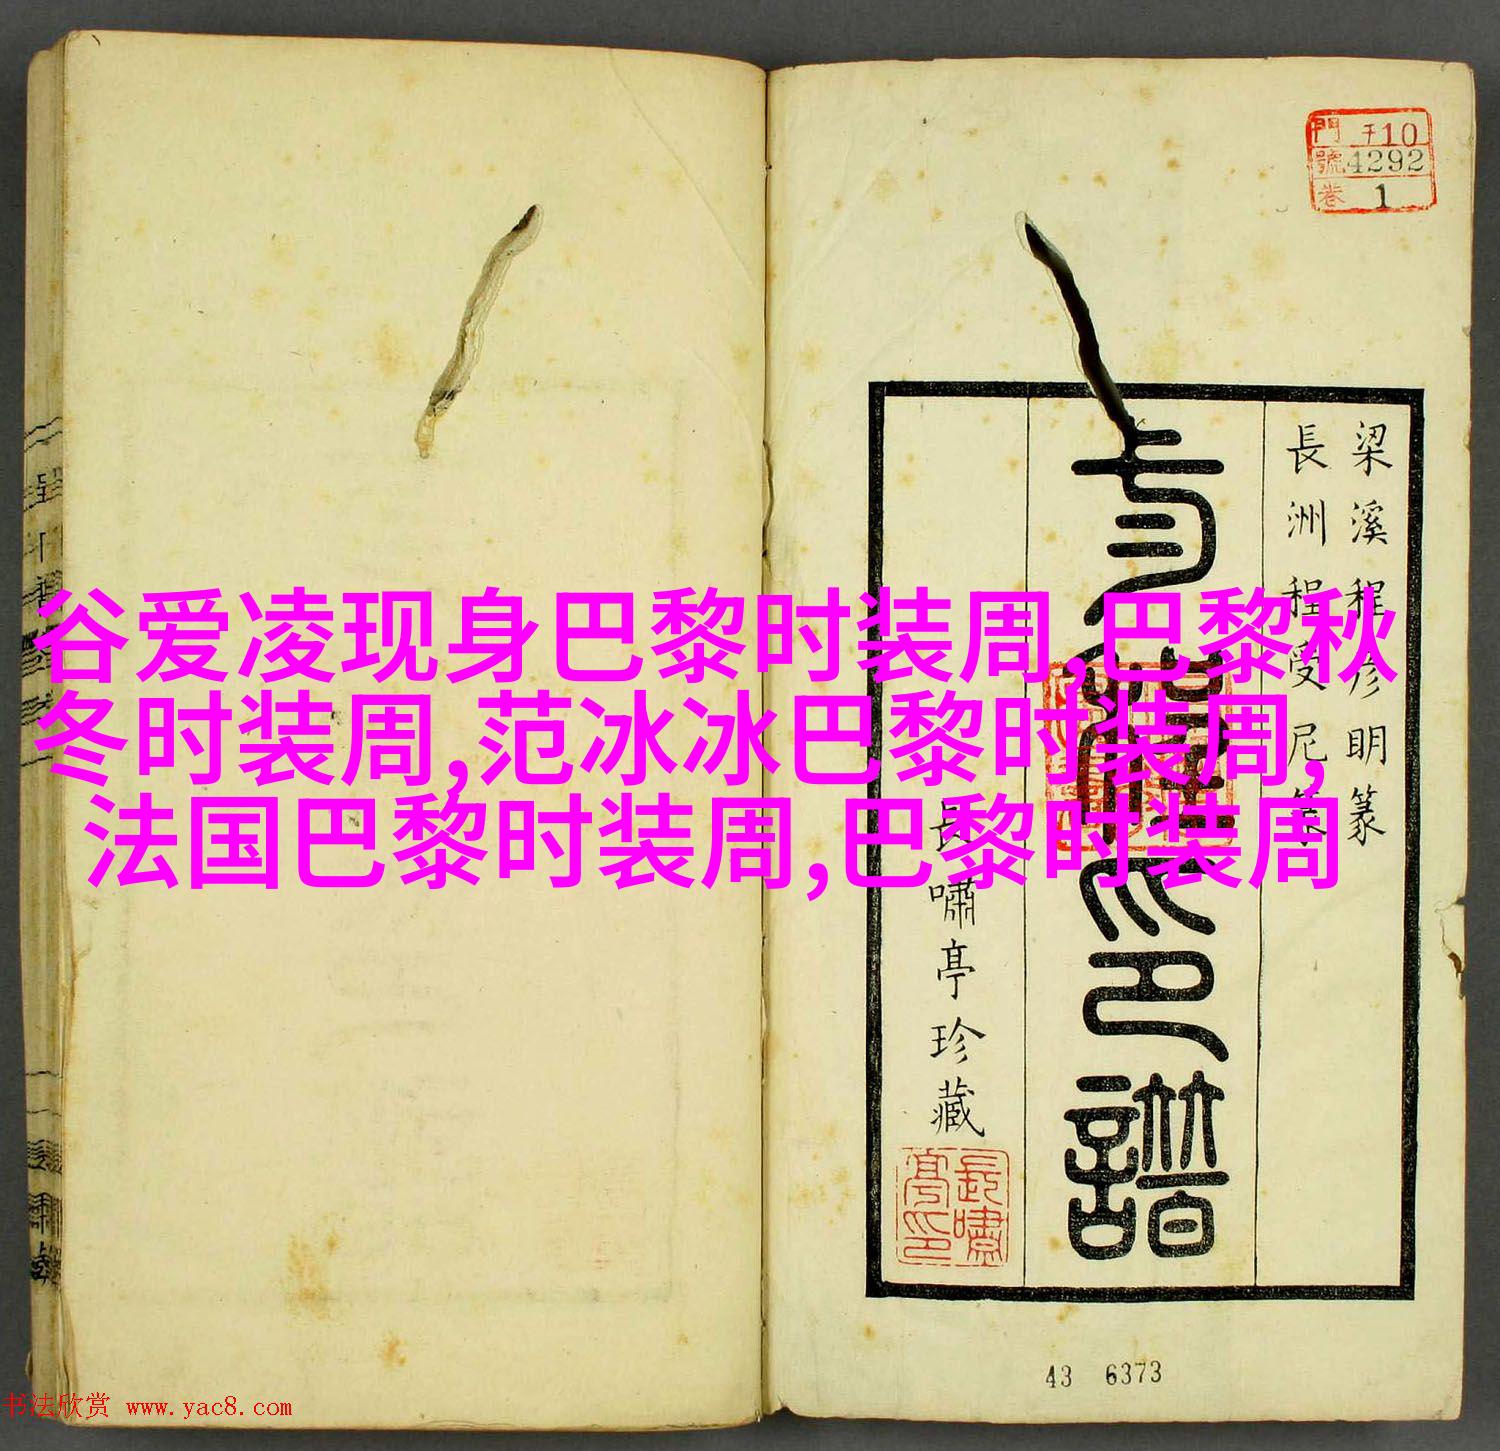 門 于10
號 4292
卷 1
梁溪程彦明篆
長洲程受尼篆
印譜
長嘯亭珍藏
長嘯亭印
谷爱凌现身巴黎时装周,巴黎秋
冬时装周,范冰冰巴黎时装周,
法国巴黎时装周,巴黎时装周
43 6373
书法欣赏 www.yac8.com